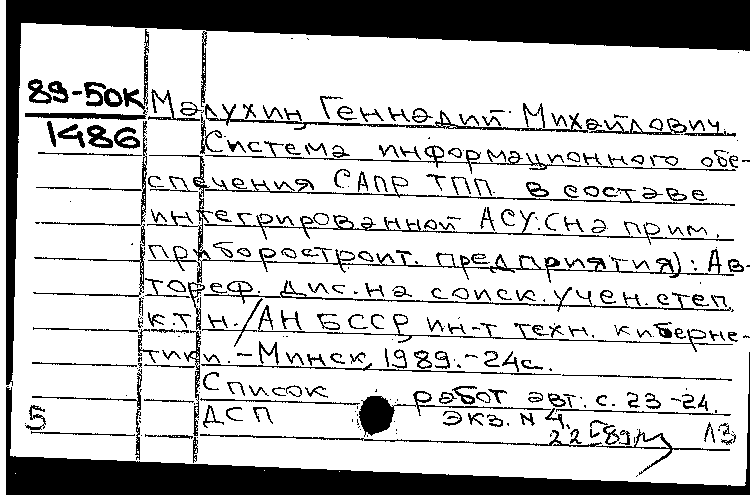 89-50К Малухин Геннадий Михайлович.
1486 Система информационного обе-
спечения САПР ТПП в составе
интегрированной АСУ:(на прим.
приборостроит. предприятия): Ав-
тореф. дис. на соиск. учен. степ.
к.т.н./АН БССР, ин-т техн. киберне-
тики.-Минск, 1989.-24с.
Список работ авт.: с. 23-24.
5 ДСП экз. N 4.
ЛЗ